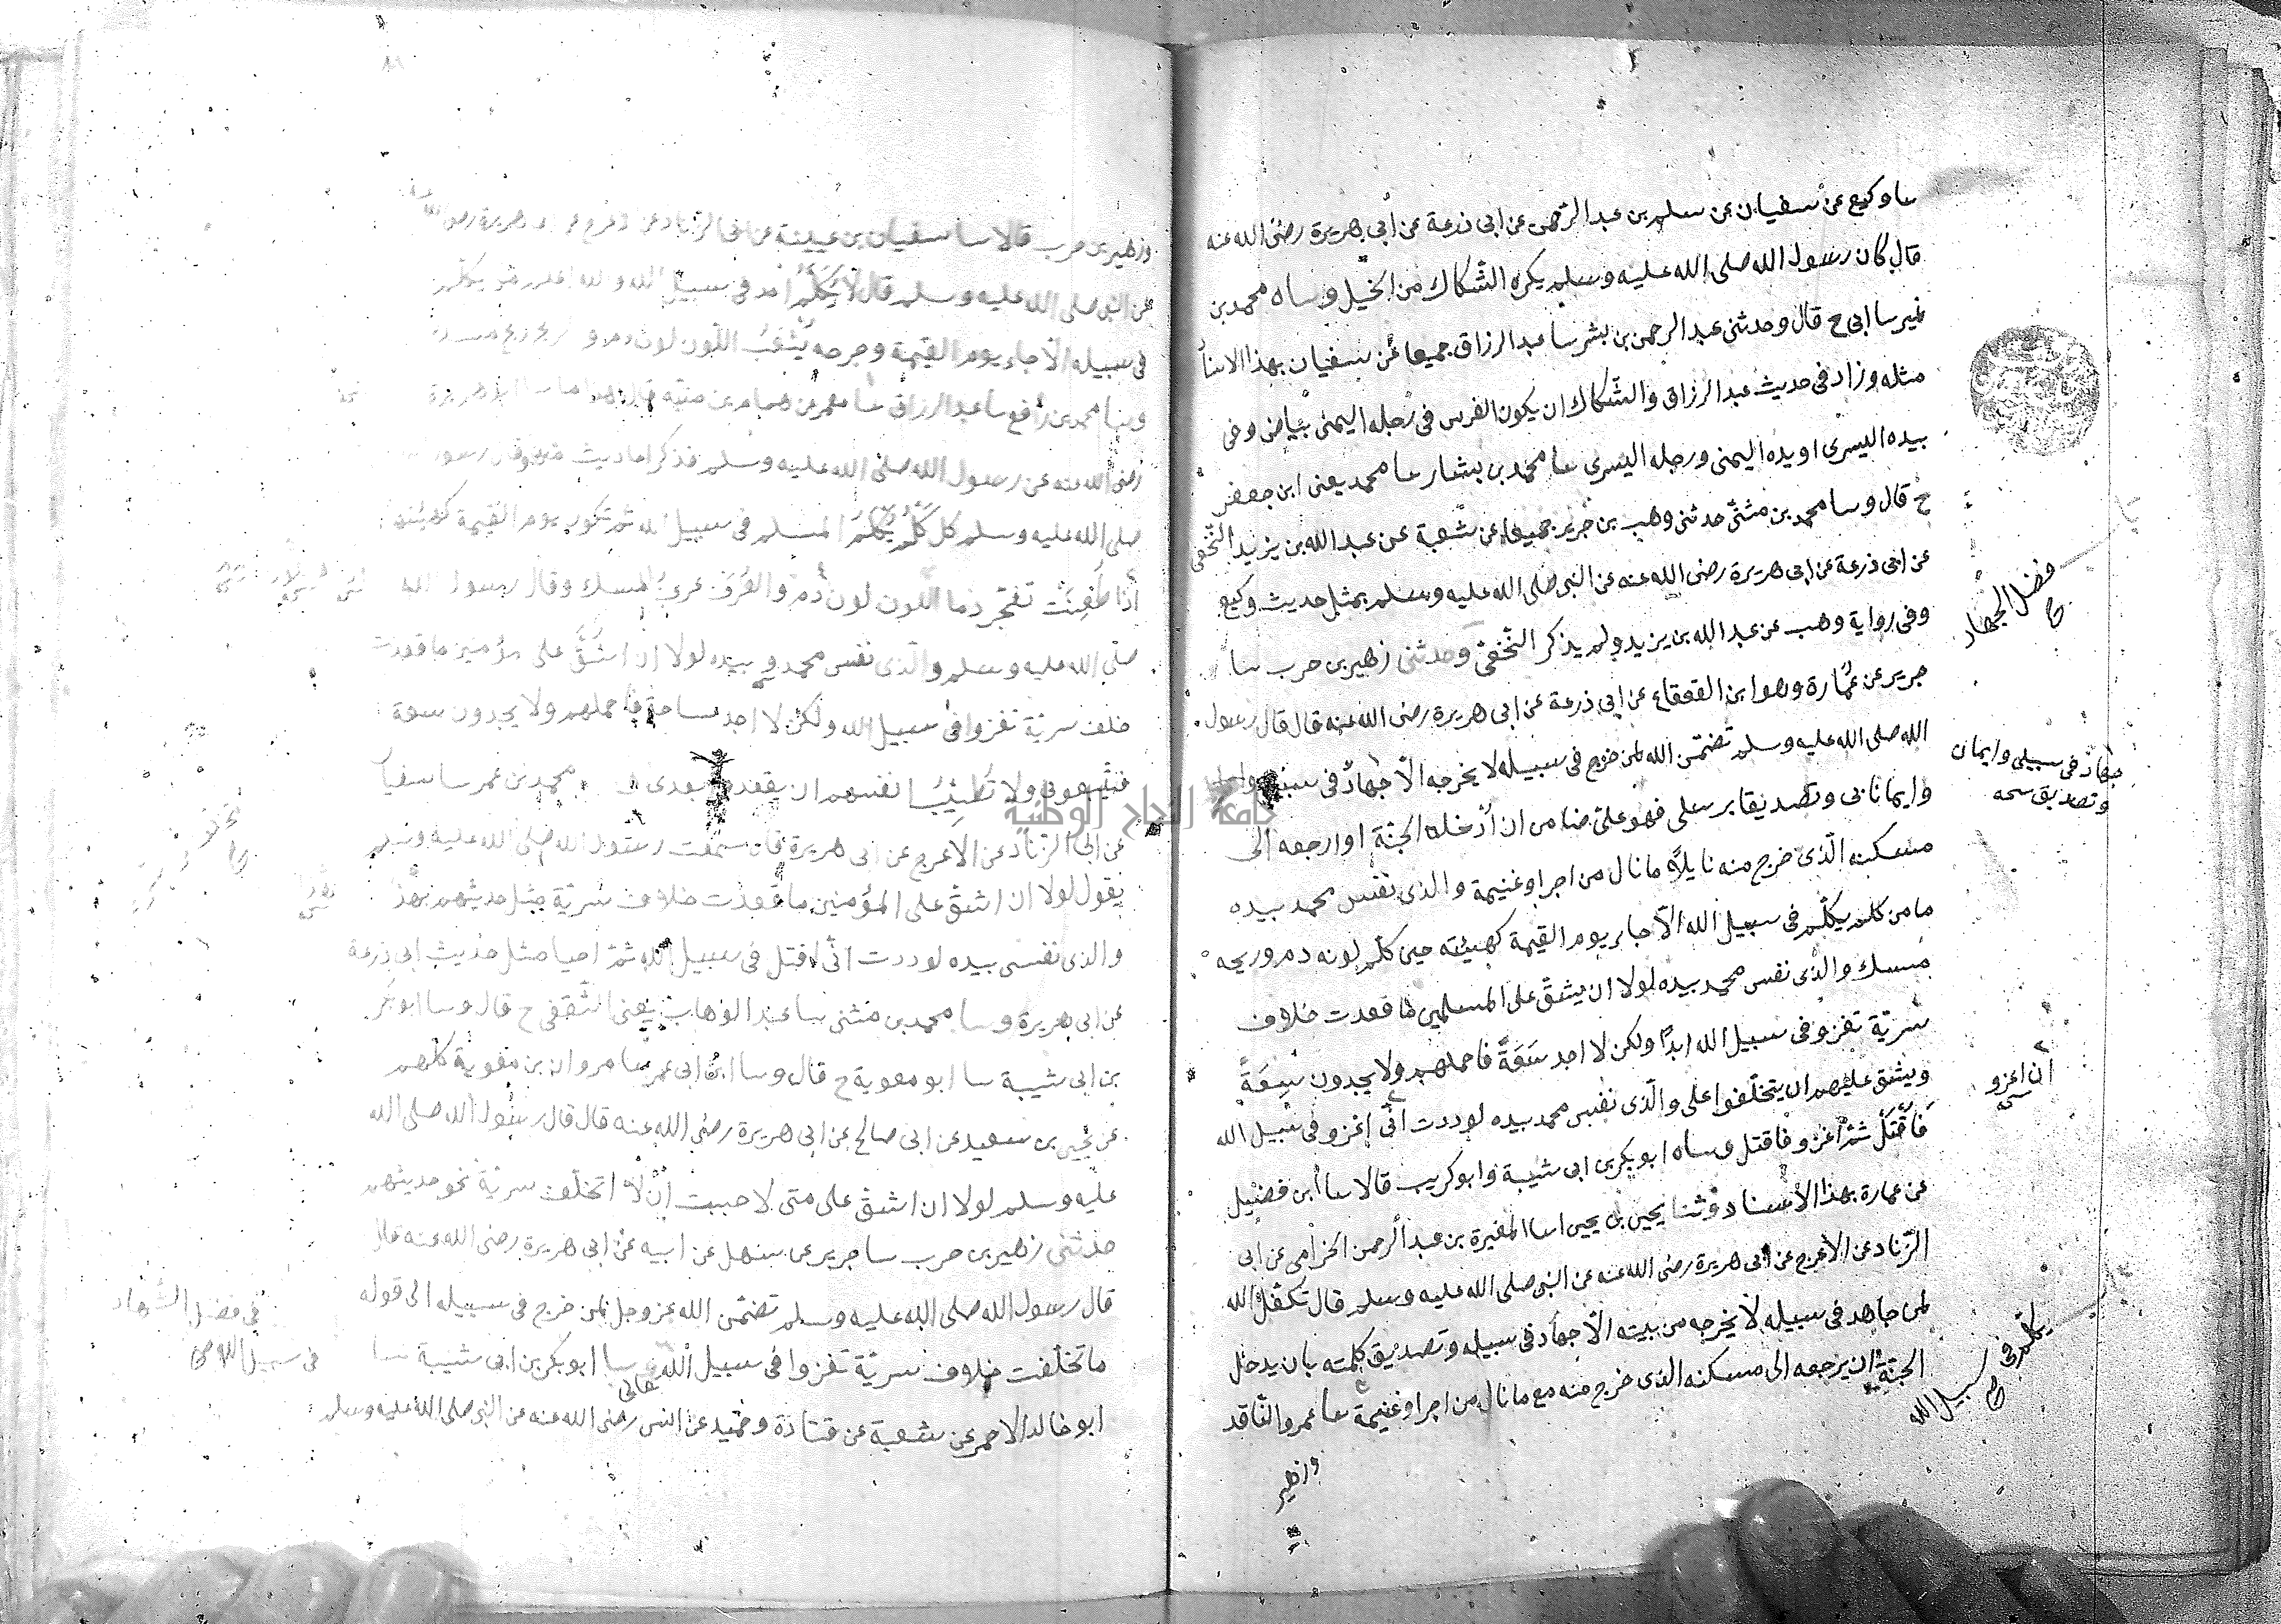 سا وكيع عن سفيان عن سلم بن عبد الرحمن عن ابى زرعة عن أبى هريرة رضى الله عنه
قال كان رسول الله صلى الله عليه وسلم يكره الشكاك من الخيل وساه محمد بن
نمير سا ابى ح قال وحدثنى عبد الرحمن بن بشر سا عبد الرزاق جميعا عن سفيان بهذا الاسنا
مثله وزاد فى حديث عبد الرزاق والشكاك ان يكون الفرس فى رجله اليمنى بياض وفى
بيده اليسرى او يده اليمنى ورجله اليسرى سا محمد بن بشار سا محمد يعنى ابن جعفر
ح قال وسا محمد بن مثنى حدثنى وهب بن جرير جميعا عن شعبة عن عبد الله بن يزيد النخعى
عن ابى ذرعة عن ابى هريرة رضى الله عنه عن النبى صلى الله عليه وسلم بمثل حديث وكيع
وفى رواية وهب عن عبد الله بن يزيد ولم يذكر النخعى وحدثنى زهير بن حرب سا
فضل الجهاد
جرير عن عمارة وهو ابن القعقاع عن ابى ذرعة عن ابى هريرة رضى الله عنه قال قال رسول
الله صلى الله عليه وسلم تضمن الله لمن خرج فى سبيله لا يخرجه الا جهاد فى
جهاد فى سبيلى وايمان
وتصديق
وايمانا بى وتصديقا برسلى فهو على ضامن ان أدخله الجنة او ارجعه الى
مسكنه الذى خرج منه نايلا ما نال من اجر او غنيمة والذى نفس محمد بيده
ما من كلم يكلم فى سبيل الله الا جاء يوم القيمة كهيئته حين كلم لونه دم وريحه
مسك والذى نفس محمد بيده لولا ان يشق على المسلمين ما قعدت خلاف
سرية تغزو فى سبيل الله ابدًا ولكن لا اجد سَعَةً فاحملهم ولا يجدون سعَةً
ويشق عليهم ان يتخلفوا على والذى نفس محمد بيده لوددت انى اغزو فى سبيل الله
ان اغزو
فاقتل ثم اغزو فاقتل وساه ابو بكر بن ابى شيبة وابو كريب قالا سا ابن فضيل
عن عمارة بهذا الاسناد وثنا يحيى بن يحيى اسا المغيرة بن عبد الرحمن الخزامى عن ابى
الزناد عن الاعرج عن ابى هريرة رضى الله عنه عن النبى صلى الله عليه وسلم قال تكفل الله
لمن جاهد فى سبيله لا يخرجه من بيته الا جهاد فى سبيله وتصديق كلمته بان يدخل
الجنة ان يرجعه الى مسكنه الذى خرج منه مع ما نال من اجر او غنيمة سا عمرو الناقد
يكلم فى سبيل الله
وزهير
وزهير بن حرب قالا سا سفيان بن عيينة عن ابى الزناد عن الاعرج عن ابى هريرة
عن النبى صلى الله عليه وسلم قال لا يكلم احد فى سبيل الله والله اعلم بمن يكلم
فى سبيله الا جاء يوم القيمة وجرحه يثعب اللون لون دم والريح ريح مسك
وسا محمد بن رافع سا عبد الرزاق سا معمر عن همام بن منبه قال هذا ما سا ابو هريرة
رضى الله عنه عن رسول الله صلى الله عليه وسلم فذكر احاديث منها وقال رسول
صلى الله عليه وسلم كل كلم يكلم المسلم فى سبيل الله ثم تكون يوم القيمة كهيئتها
اذا طعنت تفجر دما اللون لون دم والعرف عرف المسك وقال رسول الله
صلى الله عليه وسلم والذى نفس محمد بيده لولا ان اشق على المؤمنين ما قعدت
خلف سرية تغزوا فى سبيل الله ولكن لا اجد سا فاحملهم ولا يجدون سعة
فيتبعونى ولا تطيب انفسهم ان يقعدوا بعدى محمد بن عمر سا سفيا
عن ابى الزناد عن الاعرج عن ابى هريرة قال سمعت رسول الله صلى الله عليه وسلم
يقول لولا ان اشق على المؤمنين ما قعدت خلاف سرية بمثل حديثهم بهذا
والذى نفسى بيده لوددت انى اقتل فى سبيل الله ثم احيا مثل حديث ابى ذرعة
عن ابى هريرة وسا محمد بن مثنى سا عبد الوهاب يعنى الثقفى ح قال وسا ابو بكر
بن ابى شيبة سا ابو معوية ح قال وسا ابن ابى عمر سا مروان بن معوية كلهم
عن يحيى بن سعيد عن ابى صالح عن ابى هريرة رضى الله عنه قال قال رسول الله صلى الله
عليه وسلم لولا ان اشق على متى لاحببت ان لا اتخلف سرية نحو حديثهم
حدثنى زهير بن حرب سا جرير عن سهل عن ابيه عن ابى هريرة رضى الله عنه قال
قال رسول الله صلى الله عليه وسلم تضمن الله عز وجل لمن خرج فى سبيله الى قوله
فى فضل الشهاد
فى سبيل الله
ما تخلفت خلاف سرية تغزوا فى سبيل الله تعالى سا ابو بكر بن ابى شيبة سا
ابو خالد الاحمر عن شعبة عن قتادة وحميد عن انس رضى الله عنه عن النبى صلى الله عليه وسلم
جامعة النجاح الوطنية